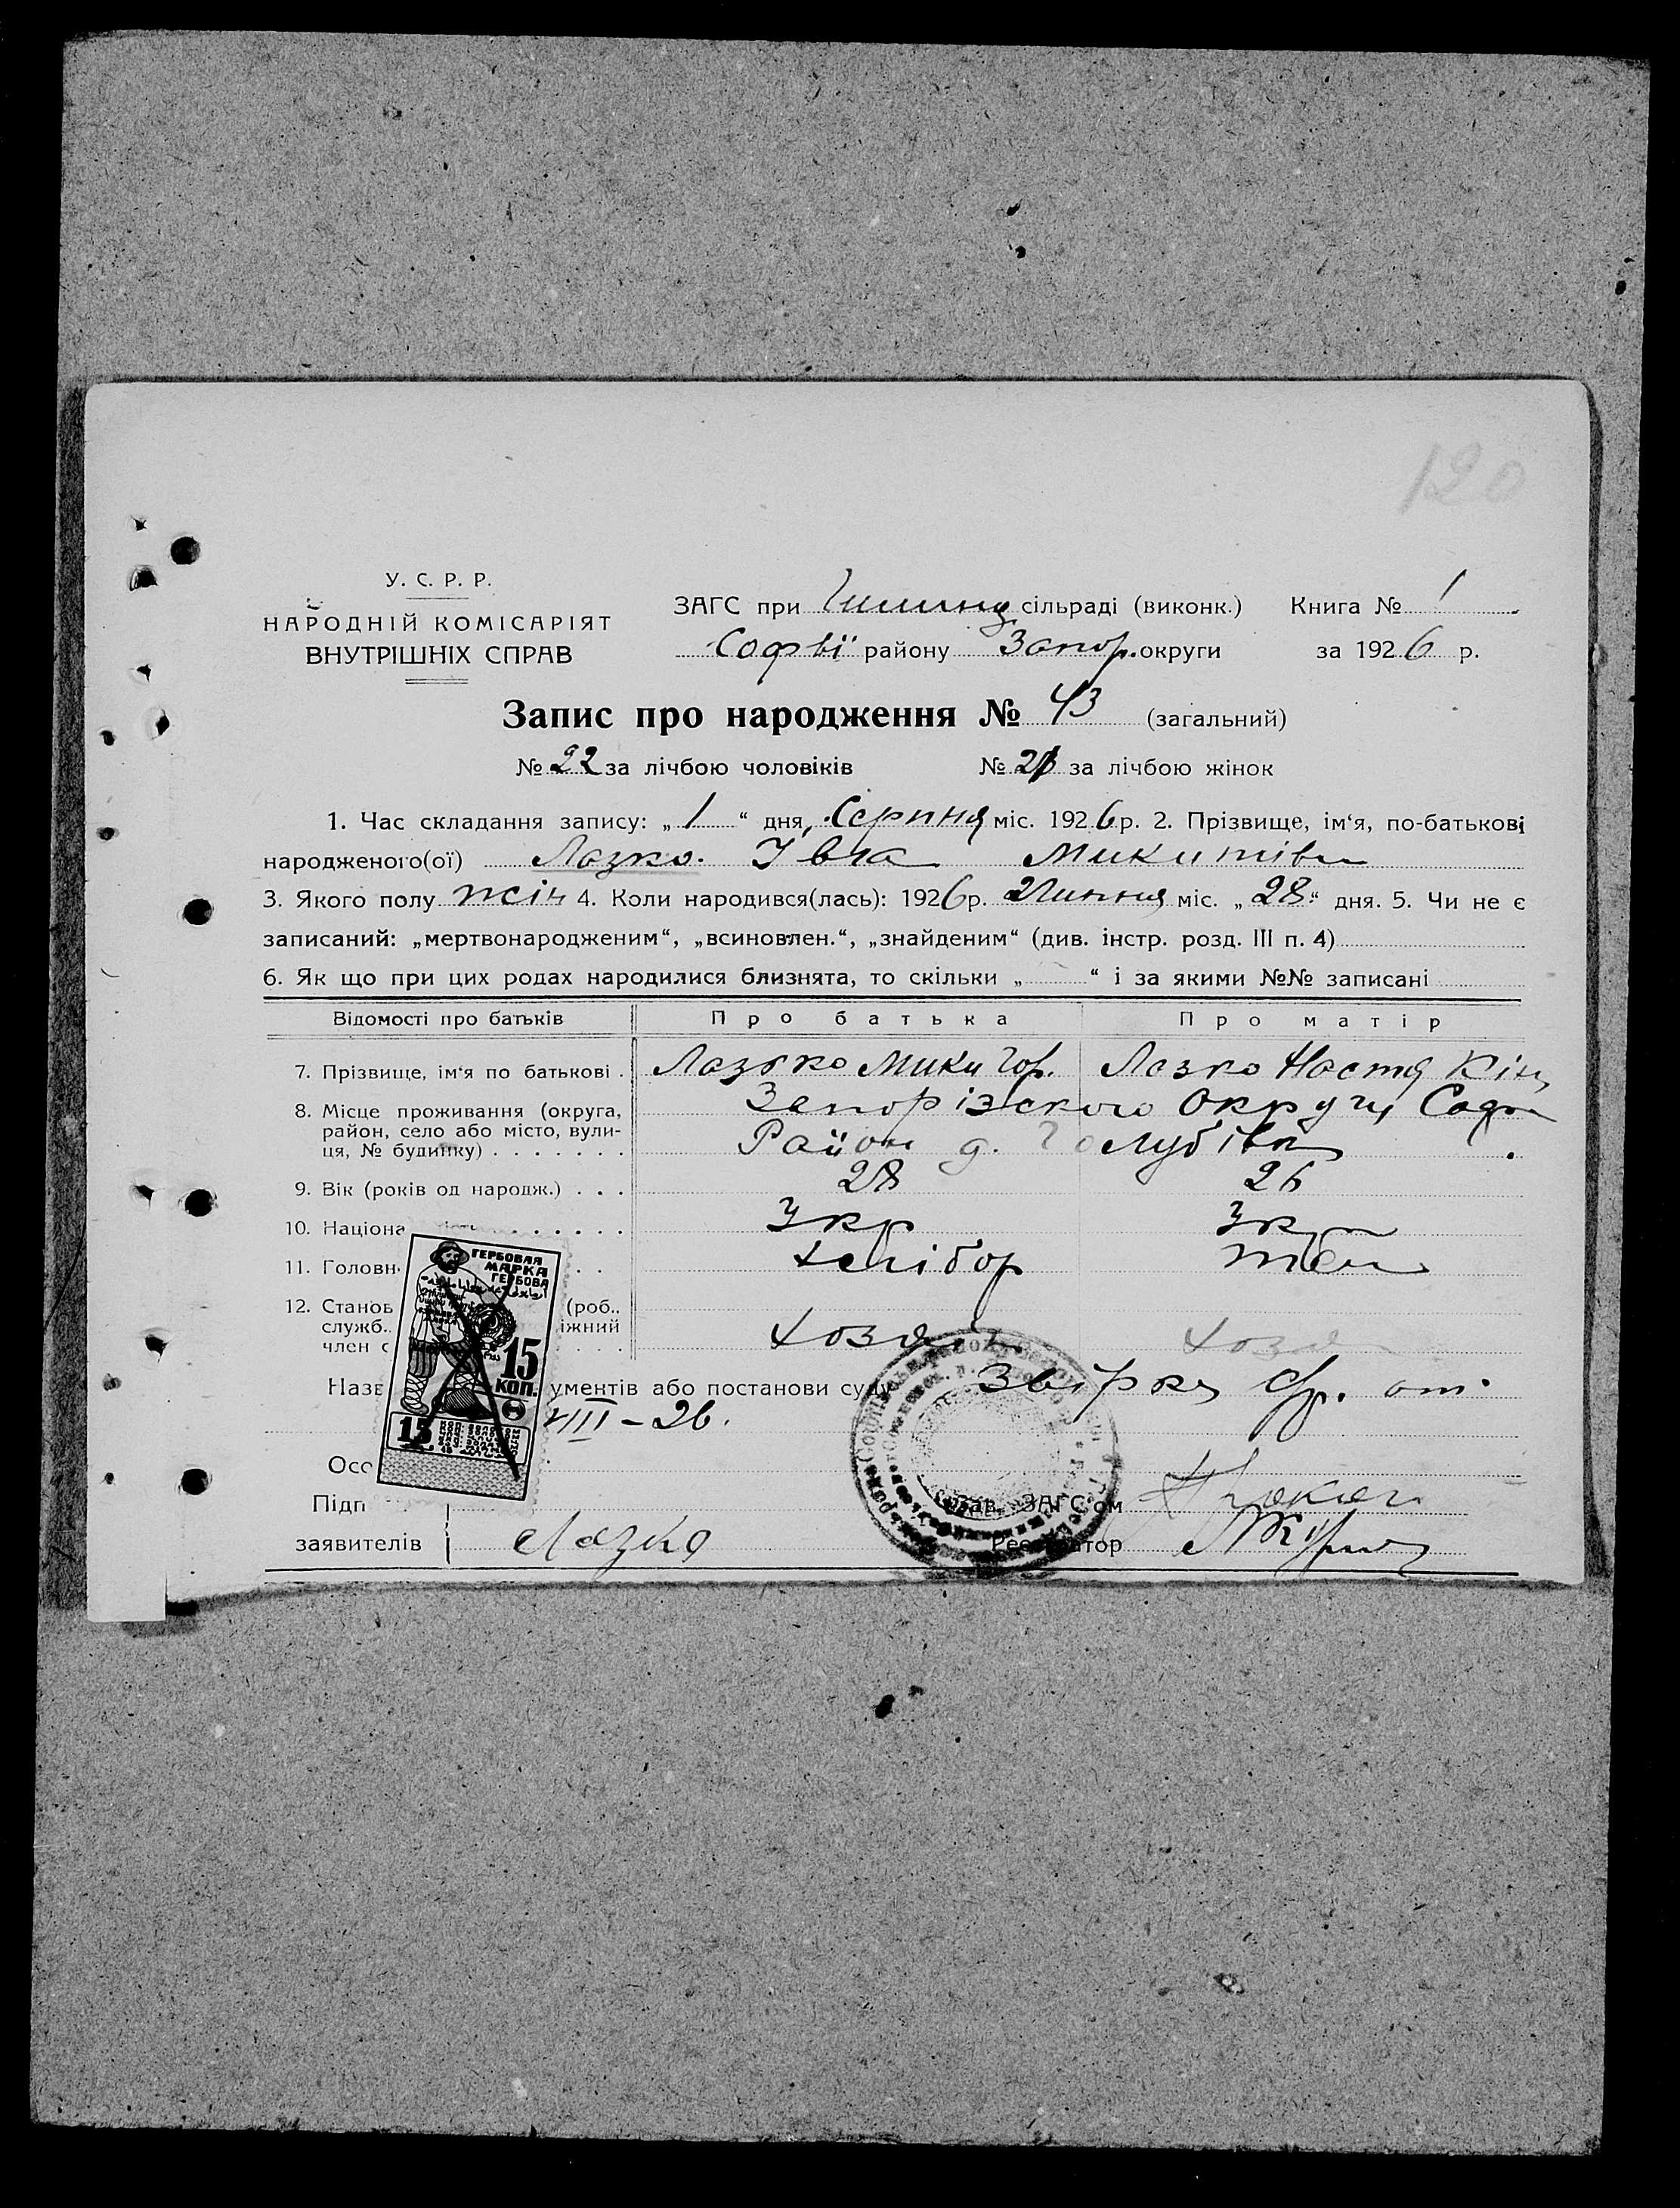 120
У. С. Р. Р.
НАРОДНІЙ КОМІСАРІЯТ
ВНУТРІШНІХ СПРАВ
ЗАГС при сільраді (виконк.) Книга № 1
Софії району Запор. округи за 1926 р.
Запис про народження № 43 (загальний)
№ 22 за лічбою чоловіків № 21 за лічбою жінок
1. Час складання запису: „1“ дня, Серпня міс. 1926 р. 2. Прізвище, ім‘я, по-батькові
народженого(ої) Лазко Ївга Микитівн
3. Якого полу жін 4. Коли народився(лась): 1926 р. Липня міс. „28“ дня. 5. Чи не є
записаний: „мертвонародженим“, „всиновлен.“, „знайденим“ (див. інстр. розд. III п. 4)
6. Як що при цих родах народилися близнята, то скільки „ “ і за якими №№ записані
Відомості про батьків Про батька Про матір
7. Прізвище, ім‘я по батькові . Лазько Мики Гор. Лазко Настя Кін
8. Місце проживання (округа, Запорізского Округи Соф
район, село або місто, вули- Район д. Голубівк
ця, № будинку) . . . . . . .
9. Вік (років од народж.) . . . 28 26
10. Націона Укр Укр
11. Головн Хлібор
12. Станов (роб..
служб. іжний
член с Хозяїн Хозя
Назв ументів або постанови суду Звірка
VIII – 26.
Осо
Підп Зав. ЗАГС‘ом
заявителів Лазко Реєстратор
ГЕРБОВАЯ
МАРКА
ГЕРБОВА
15
КОП.
15